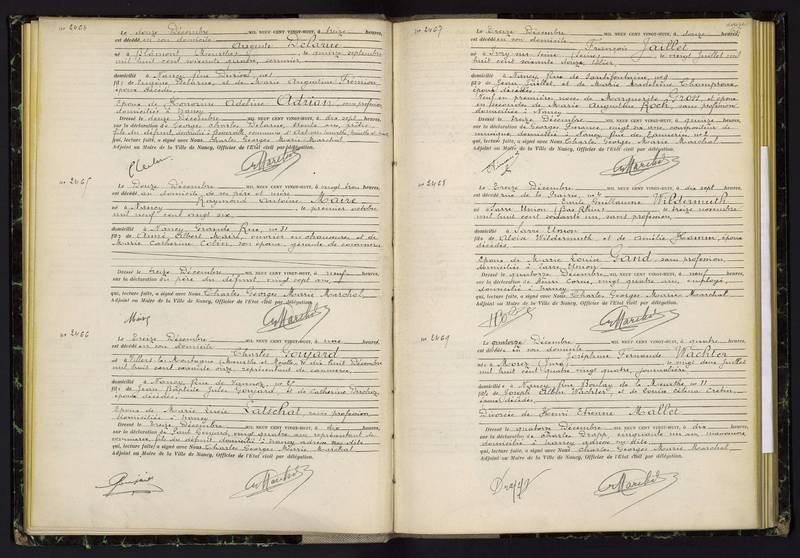 No 2464
Le douze Décembre MIL NEUF CENT VINGT-HUIT, à treize heures,
est décédé en son domicile
Auguste Delarue
né à Blâmont (Meurthe) le quinze septembre
mil huit cent soixante quatre,
domicilié à Nancy
fils de Eugène Delarue, et de Marie Augustine
époux décédés,
Epoux de Honorine Adeline Adrian, sans profession
domiciliée à Nancy
Dressé le douze Décembre MIL NEUF CENT VINGT-HUIT, à dix sept heures,
sur la déclaration de Georges Charles Delarue, trente
fils du défunt, domicilié à
qui, lecture faite, a signé avec Nous Charles Georges Marie Marchal
Adjoint au Maire de la Ville de Nancy, Officier de l'Etat civil par délégation.
No 2465
Le Douze Décembre MIL NEUF CENT VINGT-HUIT, à vingt trois heures,
est décédé au domicile de ses père et mère
Raymond Antoine Maire
né à Nancy le premier octobre
mil neuf cent vingt six,
domicilié à Nancy Grande Rue, no 31
fils de Aimé Albert Maire, ouvrier en chaussures, et de
Marie Catherine Colin, son épouse, gérante de
Dressé le treize Décembre MIL NEUF CENT VINGT-HUIT, à neuf heures,
sur la déclaration du père du défunt, vingt sept ans,
qui, lecture faite, a signé avec Nous Charles Georges Marie Marchal
Adjoint au Maire de la Ville de Nancy, Officier de l'Etat civil par délégation.
No 2466
Le treize Décembre MIL NEUF CENT VINGT-HUIT, à une heures,
est décédé en son domicile
Charles Goyard
né à Villers la Montagne (Meurthe et Moselle) le dix huit Décembre
mil huit cent soixante onze, représentant de commerce,
domicilié à Nancy Rue de
fils de Jean Baptiste Jules Goyard, et de Catherine
époux décédés,
Epoux de Marie Lucie Latschat, sans profession
domiciliée à Nancy
Dressé le treize Décembre MIL NEUF CENT VINGT-HUIT, à dix heures,
sur la déclaration de Paul Goyard, vingt quatre ans, représentant de
commerce, fils du défunt domicilié à Nancy
qui, lecture faite, a signé avec Nous Charles Georges Marie Marchal
Adjoint au Maire de la Ville de Nancy, Officier de l'Etat civil par délégation.
No 2467
Le Treize Décembre MIL NEUF CENT VINGT-HUIT, à douze heures,
est décédé en son domicile
François Jaillet
né à Ivry sur Seine (Seine) le vingt Juillet mil
huit cent soixante douze, tôlier,
domicilié à Nancy, Rue de
fils de Jean Jaillet, et de Marie Madeleine
époux décédés,
Veuf en premières noces de Marguerite Gron, et époux
en secondes de Marie Augustine Roch, sans profession,
domiciliée à Nancy
Dressé le treize Décembre MIL NEUF CENT VINGT-HUIT, à quinze heures,
sur la déclaration de Georges
musique, domicilié à Nancy, Rue
qui, lecture faite, a signé avec Nous Charles Georges Marie Marchal
Adjoint au Maire de la Ville de Nancy, Officier de l'Etat civil par délégation.
No 2468
Le treize Décembre MIL NEUF CENT VINGT-HUIT, à dix sept heures,
est décédé rue de la Prairie,
Emile Guillaume Wildermuth
né à Sarre Union (Bas Rhin) le treize novembre
mil huit cent soixante un, sans profession,
domicilié à Sarre Union
fils de Aloïse Wildermuth et de Amélie époux
décédés,
Epoux de Marie Louise Gand sans profession,
domiciliée à Sarre Union
Dressé le quatorze Décembre MIL NEUF CENT VINGT-HUIT, à neuf heures,
sur la déclaration de Henri vingt quatre ans, employé,
domicilié à Nancy
qui, lecture faite, a signé avec Nous Charles Georges Marie Marchal
Adjoint au Maire de la Ville de Nancy, Officier de l'Etat civil par délégation.
No 2469
Le quatorze Décembre MIL NEUF CENT VINGT-HUIT, à quatre heures,
est décédée en son domicile
Joséphine Fernande Wachter
née à Morez (Jura) le vingt deux Juillet
mil huit cent quatre vingt quatre, journalière,
domiciliée à Nancy, Rue Boulay de la Meurthe no 11
fille de Joseph Albin Wachter, et de Louise Célina Cretin,
époux décédés,
Divorcée de Henri Etienne Mallet
Dressé le quatorze Décembre MIL NEUF CENT VINGT-HUIT, à dix heures,
sur la déclaration de Charles Drapp, cinquante un ans, manoeuvre,
domicilié à Nancy
qui, lecture faite, a signé avec Nous Charles Georges Marie Marchal
Adjoint au Maire de la Ville de Nancy, Officier de l'Etat civil par délégation.